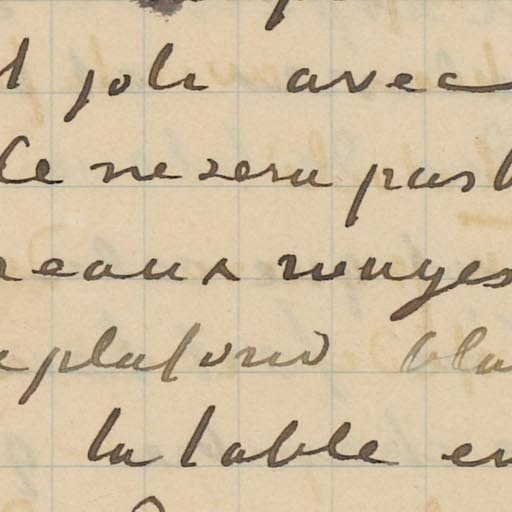 t joli avec
le ne sera pas b
reaux rouges
plafond bla
la table en